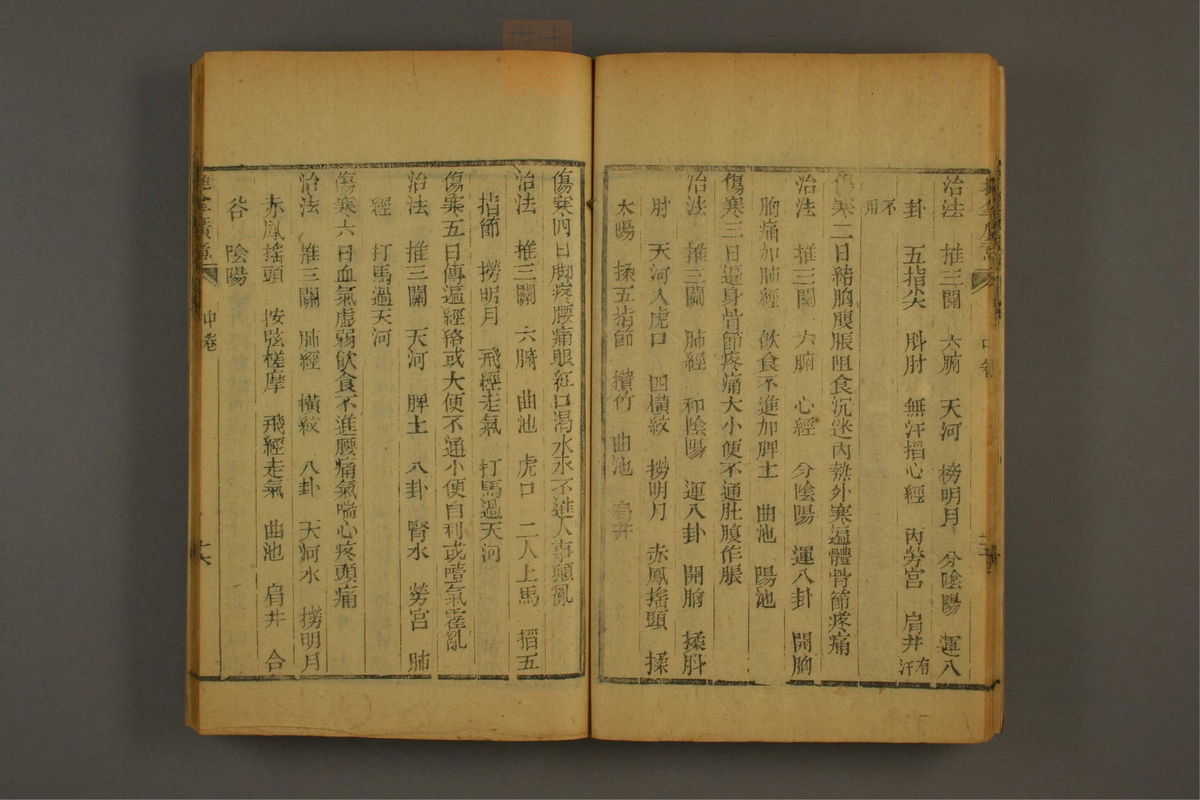 治法　推三關　六腑　天河　撈明月　分陰陽　運八
卦　五指尖　㪷肘　無汗搯心經　內勞宮　肩井有汗
不用
傷寒二日結胸腹脹阻食沉迷內熱外寒遍體骨節疼痛
治法　推三關　六腑　心經　分陰陽　運八卦　開胸
胸痛加肺經　飲食不進加脾土　曲池　陽池
傷寒三日遍身骨節疼痛大小便不通肚腹作脹
治法　推三關　肺經　和陰陽　運八卦　開胸　揉㪷
肘　天河入虎口　四橫紋　撈明月　赤鳳搖頭　揉
太陽　揉五指節　攢竹　曲池　肩井
傷寒四日脚疼腰痛眼紅口渴水氷不進人事顛亂
治法　推三關　六腑　曲池　虎口　二人上馬　搯五
指節　撈明月　飛經走氣　打馬過天河
傷寒五日傳遍經絡或大便不通小便自利或噎氣霍亂
治法　推三關　天河　脾土　八卦　腎水　勞宮　肺
經　打馬過天河
傷寒六日血氣虛弱飲食不進腰痛氣喘心疼頭痛
治法　推三關　肺經　橫紋　八卦　天河水　撈明月
赤鳳搖頭　按弦槎摩　飛經走氣　曲池　肩井　合
谷　陰陽
中卷